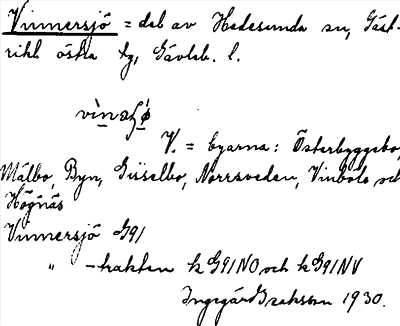 Vinnersjö = del av Hedesunda sn, Gäst-
rikl. östra tg, Gävleb. l.
V. = Byarna: Österbyggebo,
Målbo, Byn, Gisselbo, Norrsveden, Vinbolo och
Högnäs
Vinnersjö G91
" -trakten k G91NO och k G91NV
Ingegärd Isaksson 1930.